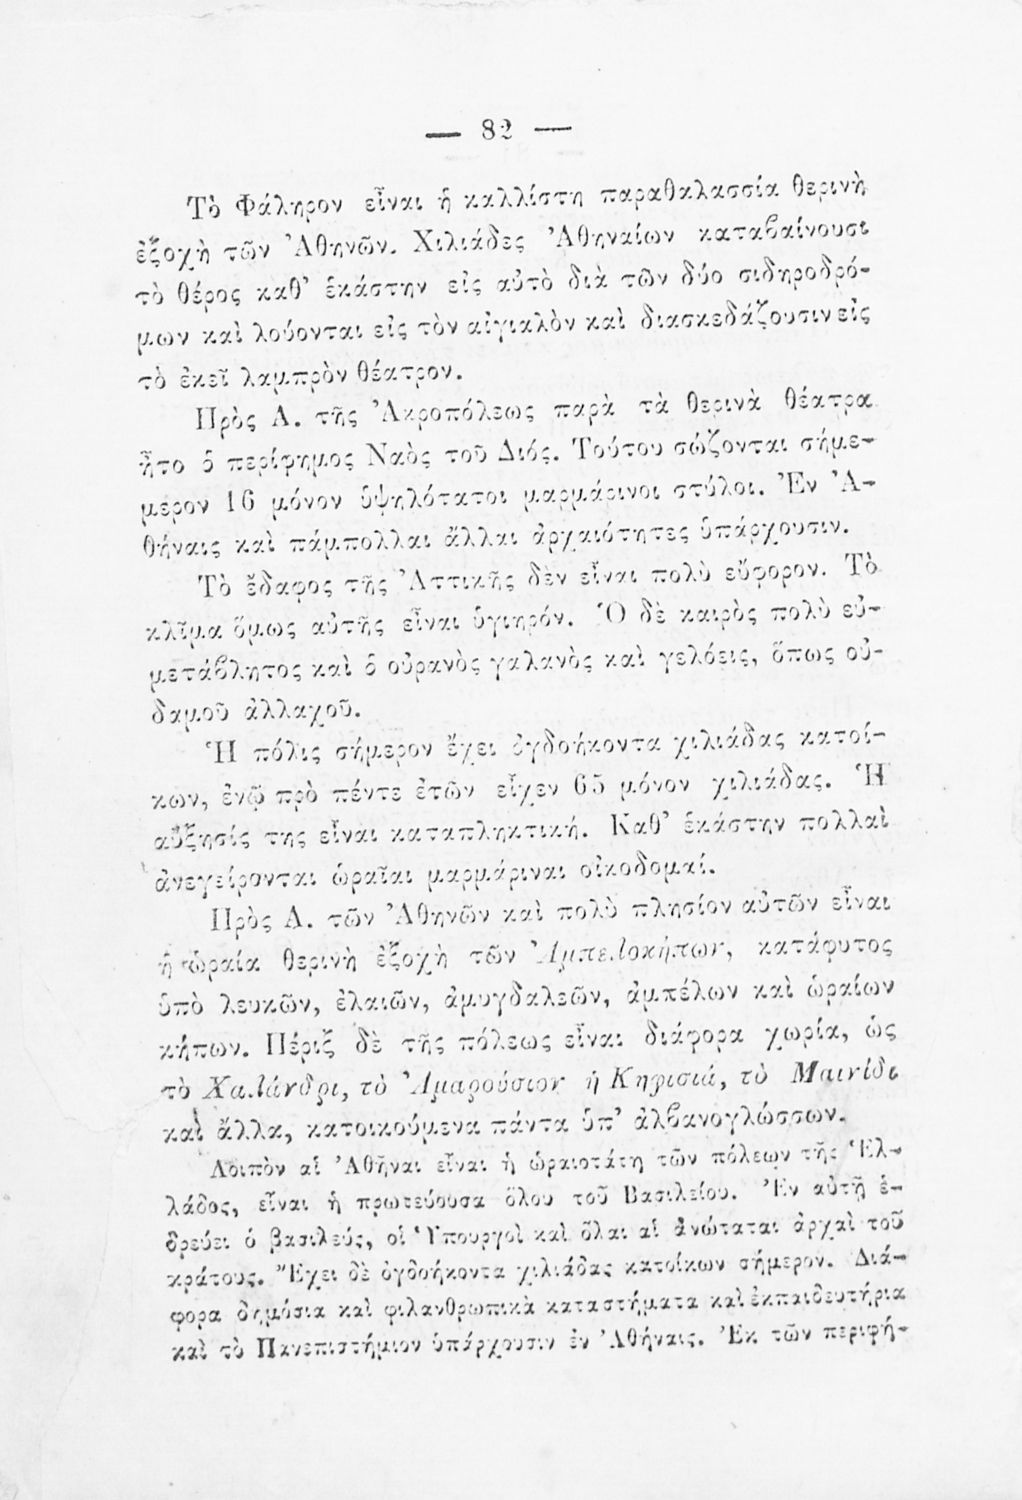 — 82 —
Τὸ Φάληρον εἶναι ἡ καλλίστη παραθαλασσία θερινὴ
ἐξοχὴ τῶν Ἀθηνῶν. Χιλιάδες Ἀθηναίων καταβαίνουσι
τὸ θέρος καθ’ ἑκάστην εἰς αὐτὸ διὰ τῶν δύο σιδηροδρό-
μων καὶ λούονται εἰς τὸν αἰγιαλὸν καὶ διασκεδάζουσιν εἰς
τὸ ἐκεῖ λαμπρὸν θέατρον.
Πρὸς Α. τῆς Ἀκροπόλεως παρὰ τὰ θερινὰ θέατρα
ἦτο ὁ περίφημος Ναὸς τοῦ Διός. Τούτου σώζονται σήμε-
μερον 16 μόνον ὑψηλότατοι μαρμάρινοι στύλοι. Ἐν Ἀ-
θήναις καὶ πάμπολλαι ἄλλαι ἀρχαιότητες ὑπάρχουσιν.
Τὸ ἔδαφος τῆς Ἀττικῆς δὲν εἶναι πολὺ εὔφορον. Τὸ
κλῖμα ὅμως αὐτῆς εἶναι ὑγιηρόν. Ὁ δὲ καιρὸς πολὺ εὐ-
μετάβλητος καὶ ὁ οὐρανὸς γαλανὸς καὶ γελόεις, ὅπως οὐ-
δαμοῦ ἀλλαχοῦ.
Ἡ πόλις σήμερον ἔχει ὀγδοήκοντα χιλιάδας κατοί-
κων, ἐνῷ πρὸ πέντε ἐτῶν εἶχεν 65 μόνον χιλιάδας. Ἡ
αὔξησίς της εἶναι καταπληκτική. Καθ’ ἑκάστην πολλαὶ
ἀνεγείρονται ὡραῖαι μαρμάριναι οἰκοδομαί.
Πρὸς Α. τῶν Ἀθηνῶν καὶ πολὺ πλησίον αὐτῶν εἶναι
ἡ ὡραία θερινὴ ἐξοχὴ τῶν Ἀμπελοκήπων, κατάφυτος
ὑπὸ λευκῶν, ἐλαιῶν, ἀμυγδαλεῶν, ἀμπέλων καὶ ὡραίων
κήπων. Πέριξ δὲ τῆς πόλεως εἶναι διάφορα χωρία, ὡς
τὸ Χαλάνδρι, τὸ Ἀμαρούσιον ἡ Κηφισιά, τὸ Μαινίδι
καὶ ἄλλα, κατοικούμενα πάντα ὑπ’ ἀλβανογλώσσων.
Λοιπὸν αἱ Ἀθῆναι εἶναι ἡ ὡραιοτάτη τῶν πόλεων τῆς Ἑλ-
λάδος, εἶναι ἡ πρωτεύουσα ὅλου τοῦ Βασιλείου. Ἐν αὐτῇ ἑ-
δρεύει ὁ βασιλεύς, οἱ Ὑπουργοὶ καὶ ὅλαι αἱ ἀνώταται ἀρχαὶ τοῦ
κράτους. Ἔχει δὲ ὀγδοήκοντα χιλιάδας κατοίκων σήμερον. Διά-
φορα δημόσια καὶ φιλανθρωπικὰ καταστήματα καὶ ἐκπαιδευτήρια
καὶ τὸ Πανεπιστήμιον ὑπάρχουσιν ἐν Ἀθήναις. Ἐκ τῶν περιφή-